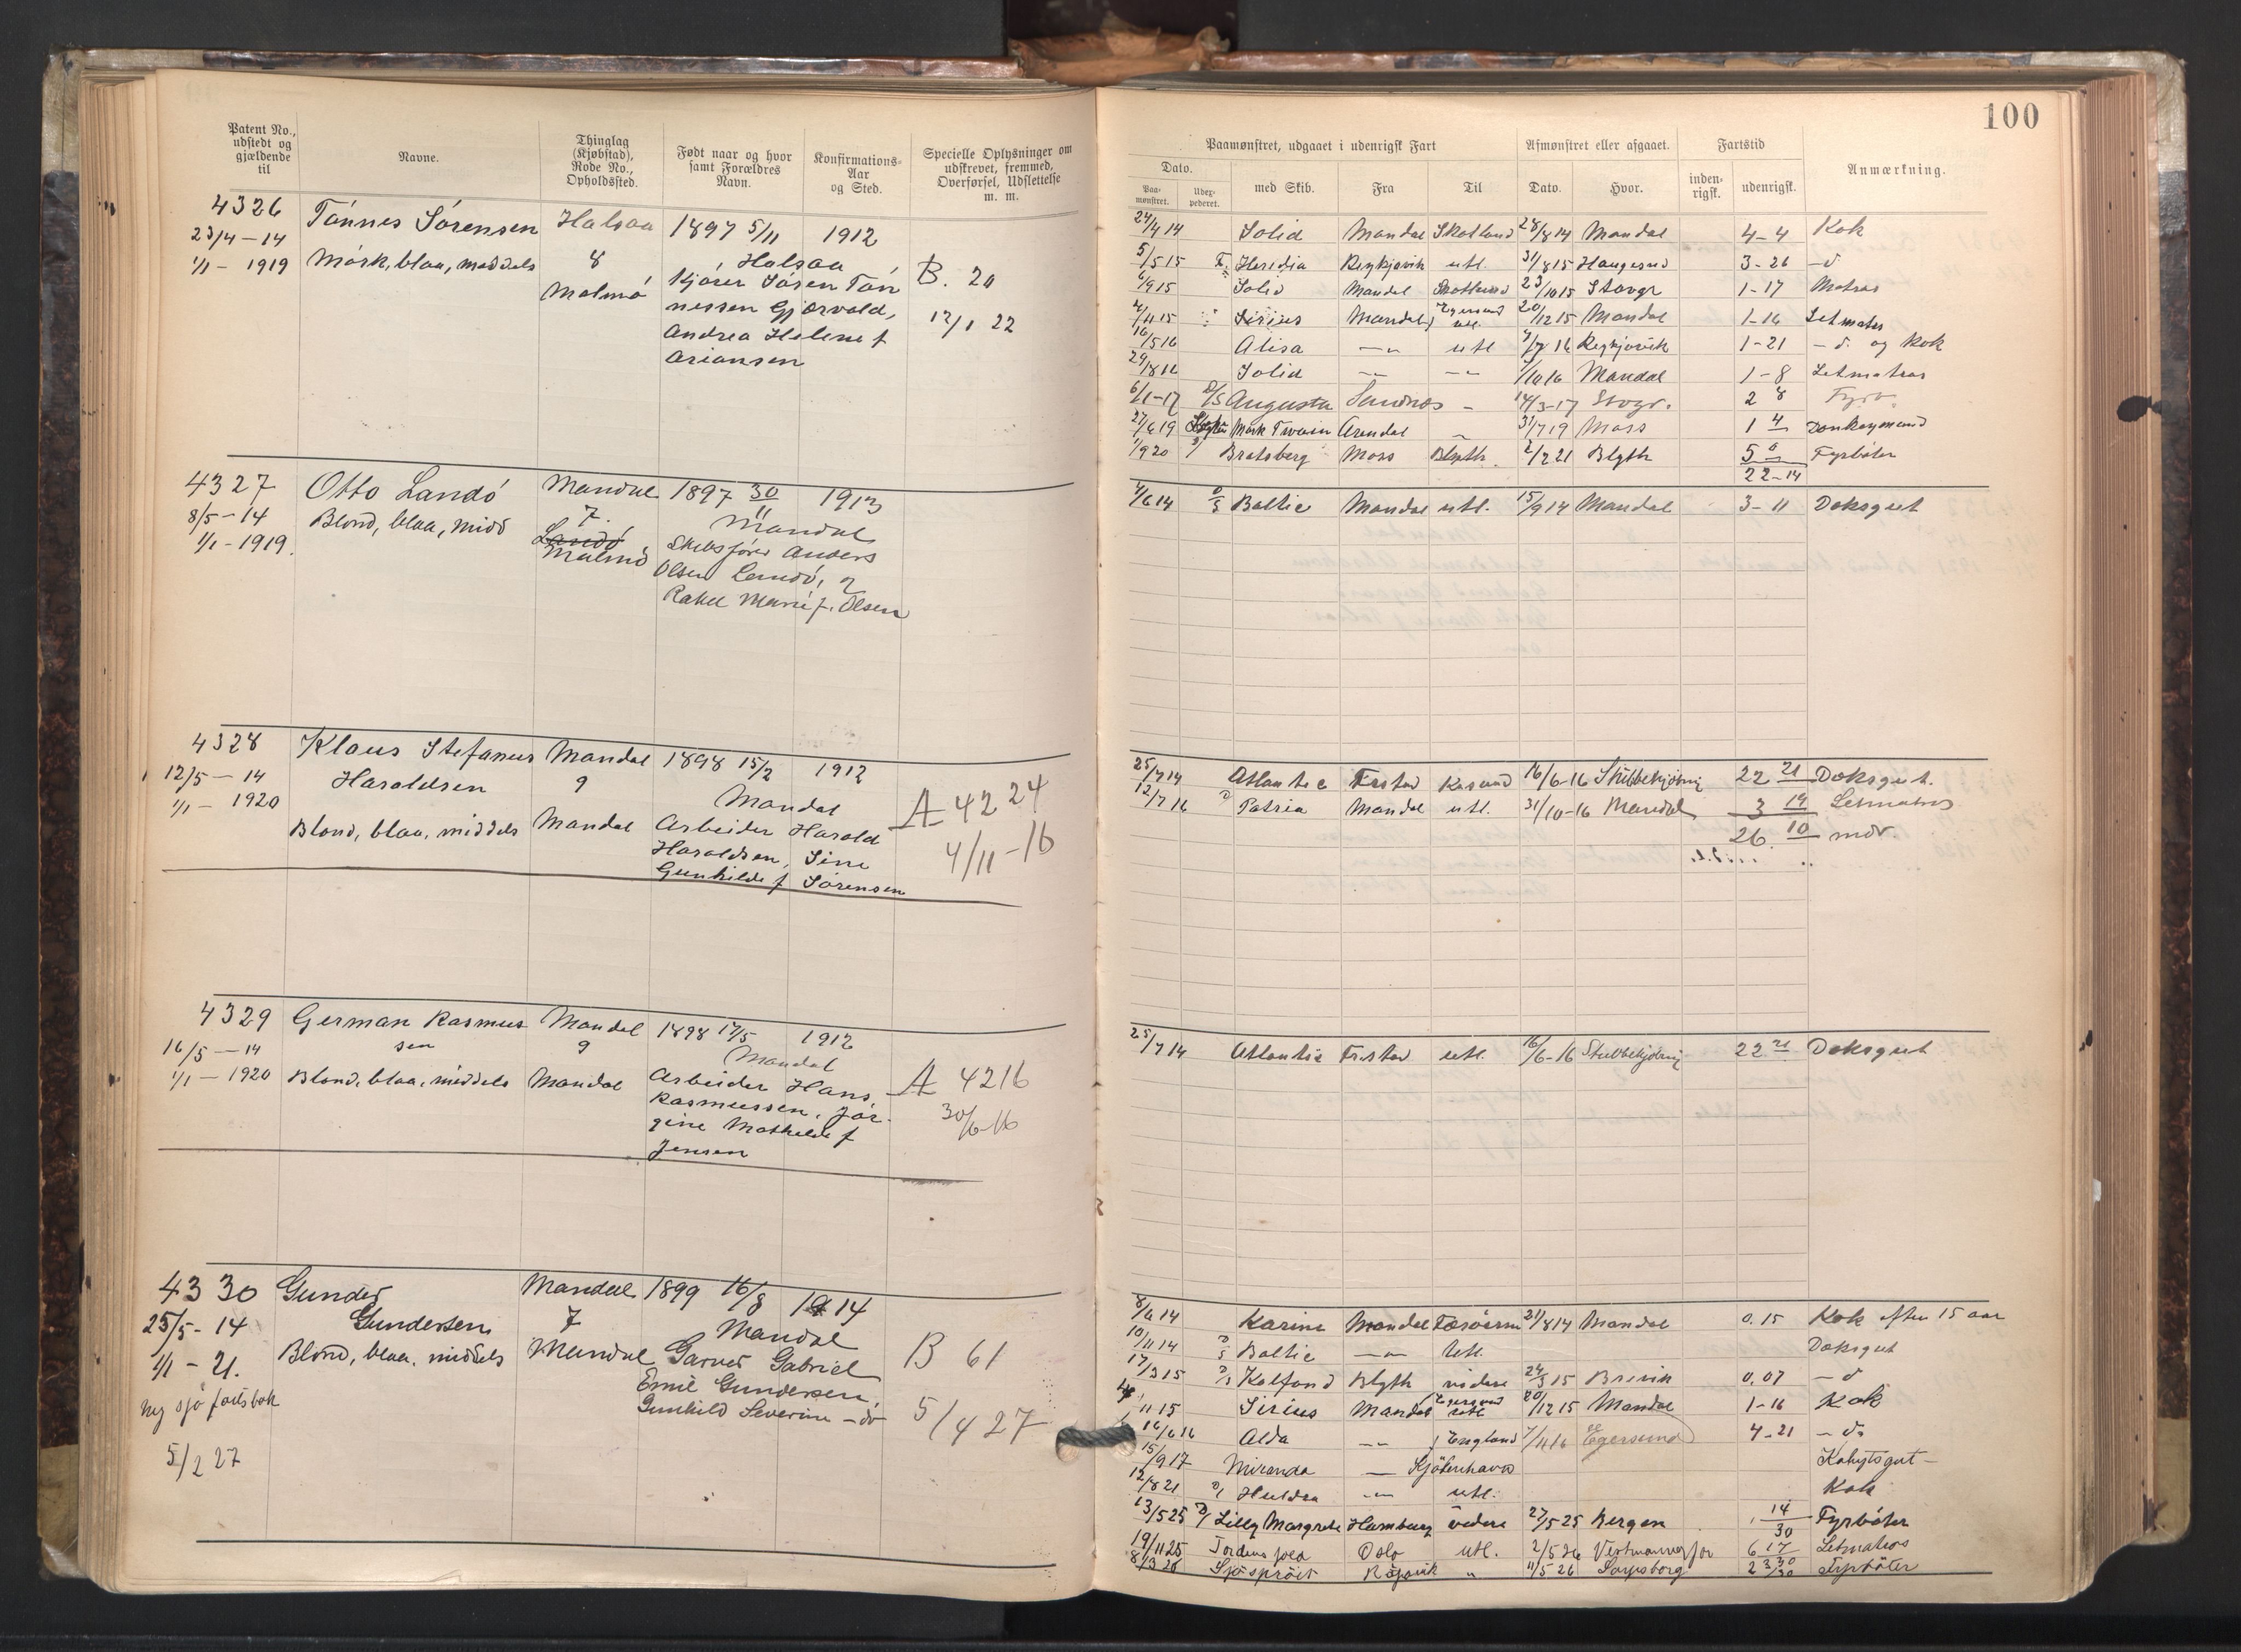 Patent No.,
udstedt og
gjældende
til
Navne.
Thinglag
(Kjøbstad),
Rode No.,
Opholdssted.
Født naar og hvor
samt Forældres
Navn.
Konfirmations-
Aar
og Sted.
Specielle Oplysninger om
udskrevet, fremmed,
Overførsel, Udslettelse
m. m.
4326 Tönnes Sörensen Halsaa 1897 5/11 1912
23/4 - 14 Mörk, blaa, middels 8 Halsaa
1/1 - 1919 Malmö Kjörer Sören Tön B. 20
nessen Gjærvold, 12/1 22
Andrea Helene f
Ariansen
4327 Otto Landö Mandal 1897 30/11 1913
8/5 - 14 Blond, blaa, midd 7. Mandal
1/1 - 1919. Landö Skibsfører Anders
Malmö Olsen Landö, og
Rakel Marie f. Olsen
4328 Klaus Stefanus Mandal 1898 15/2 1912
12/5 - 14 Haraldsen 9 Mandal
1/1 - 1920 Blond, blaa, middels Mandal Arbeider Harald A 4224
Haraldsen, Sine 4/11 - 16
Gunhilde f Sörensen
4329 German Rasmus Mandal 1898 17/5 1912
16/5 - 14 sen 9 Mandal
1/1 - 1920 Blond, blaa, middels Mandal Arbeider Hans A 4216
Rasmussen, Jör- 30/6-16
gine Mathilde f
Jensen
4330 Gunder Mandal 1899 16/8 1914
25/5 - 14 Gundersen 7 Mandal
1/1 - 21. Blond, blaa, middels Mandal Garver Gabriel B 61
ny sjöfartsbok Emil Gundersen,
Gunhild Severine - do 5/4 27
5/2 27
100
Paamønstret, udgaaet i udenrigsk Fart
Afmønstret eller afgaaet.
Fartstid
Anmærkning.
Dato.
Paa-
mønstret.
Udex-
pederet.
med Skib.
Fra
Til
Dato.
Hvor.
inden-
rigsk.
udenrigsk.
24/4 14 Solid Mandal Skotland 28/8 14 Mandal 4-4 Kok
5/5 15 Heridia Reykjavik utl. 31/8 15 Haugesund 3-26 - d
6/9 15 Solid Mandal Skotland 23/10 15 Stavgr 1-17 Matros
4/11 15 Sirius Mandal Egersund utl. 20/12 15 Mandal 1-16 Letmatros
16/5 16 Alisa -"- utl 7/7 16 Reykjavik 1-21 - d. og Kok
29/8 16 Solid -"- -"- 7/10 16 Mandal 1-8 Letmatros
6/1-17 D/S Augusta Sandnes - 14/3-17 Stvgr. 2 8 Fyrb.
27/6 19 Mark Twain Arendal - 31/7 19 Moss 1 4 Donkeymand
1/9 20 Bratsberg Moss Blyth 2/2 21 Blyth 5 0 Fyrböter
22-14
4/6 14 D/S Baltic Mandal utl. 15/9 14 Mandal 3-11 Daksgut
25/7 14 Atlantic Frstad 16/6-16 Stubbekjöbing 22 21 Daksgut.
12/7 16 Patria Mandal utl. 31/10-16 Mandal 3 19 Letmatros
26. 10 mdr.
25/7 14 Atlantic Frstad utl. 16/6-16 Stubbekjöbing 22 21 Daksgut
8/6 14 Karine Mandal Færöerne 21/8 14 Mandal 0.15 Kok efter 15 aar
10/11 14 D/S Baltic -"- Utl. Daksgut
17/3 15 Kalfond Blyth videre 24/3 15 Brevik 0.07 - d
4/11 15 Sirius Mandal Egersund utl 20/12 15 Mandal 1-16 Kok
16/6 16 Alda -"- England 7/11 16 Egersund 4-21 - do
15/9 17 Miranda - Kjöbenhavn Kahytsgut -
12/8 21 Huldra -"- utl. Kok
13/5 25 Lilly Margrete Hamburg videre 27/5 25 Bergen 14/30 Fyrböter
19/11 25 Oslo utl. 2/5 26 6 17 Letmatros
8/3 26 " 11/5 26 Sarpsborg 2 Fyrböter